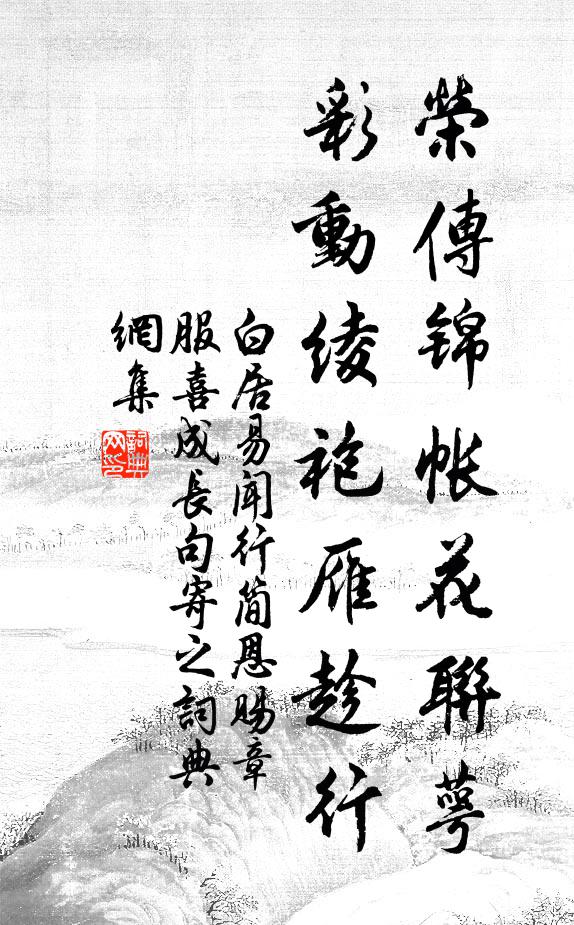 榮傳錦帳花聯萼
彩動綾袍雁趁行
白居易聞行簡恩賜章
服喜成長句寄之詞典
網集
詞典網印